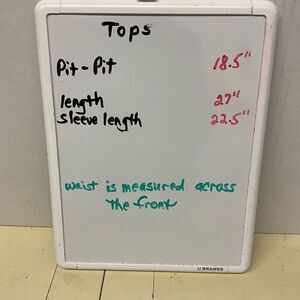 Tops
Pit-Pit 18.5"
length 27"
sleeve length 22.5"
waist is measured across
the front
U BRANDS